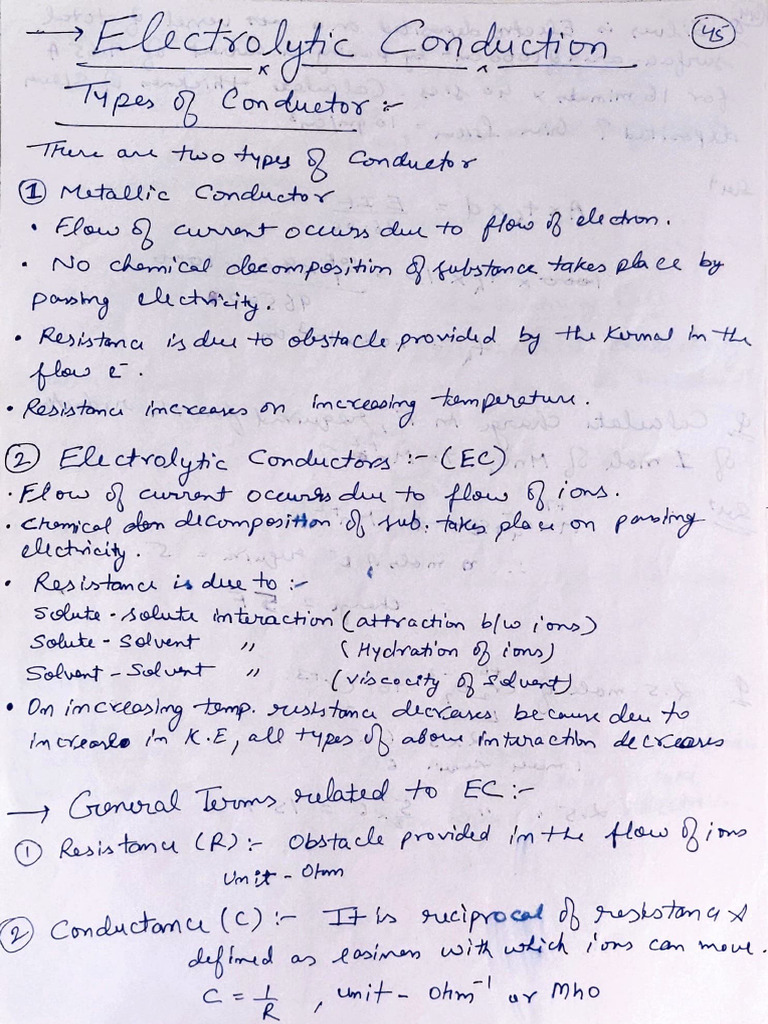 45
→ Electrolytic Conduction
Types of Conductor :-
There are two types of Conductor
① Metallic Conductor
• Flow of current occurs due to flow of electron.
• No chemical decomposition of substance takes place by
passing electricity.
• Resistance is due to obstacle provided by the Kernal in the
flow e⁻.
• Resistance increases on increasing temperature.
② Electrolytic Conductors :- (EC)
• Flow of current occurs due to flow of ions.
• Chemical decomposition of sub. takes place on passing
electricity.
• Resistance is due to :-
Solute - Solute interaction (attraction b/w ions)
Solute - Solvent " (Hydration of ions)
Solvent - Solvent " (viscocity of solvent)
• On increasing temp. resistance decreases because due to
increase in K.E, all types of above interaction decreases
→ General Terms related to EC :-
① Resistance (R) :- Obstacle provided in the flow of ions
Unit - Ohm
② Conductance (C) :- It is reciprocal of resistance &
defined as easiness with which ions can move.
C = 1/R , unit - Ohm⁻¹ or Mho